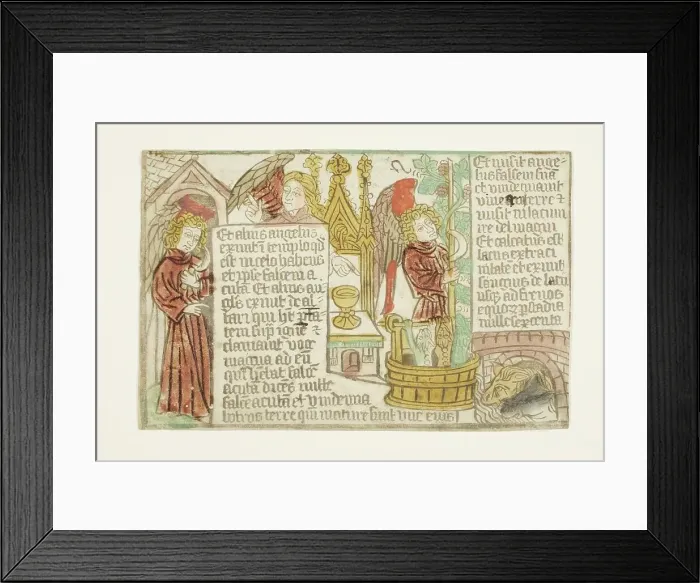 Et alius angelus
exiuit de templo qd̄
est in celo habens
et ipse falcem a
cutā Et alius an
gl̄s exiuit de al
tari qui ht p̄ta
tem sup̄ ignē ⁊
clamauit voce
magna ad eū
qui hēbat falcē
acutā dicēs mitte
falcē acutā et vindemia
botros terre qm̄ mature sunt vue eius
Et misit ange-
lus falcem suā
et vindemiauit
terre ⁊
misit in lacum
ire dei magni
Et calcatus est
lacus extra ci
uitatē et exiuit
sanguis de lacu
usq̄ ad frenos
equoꝝ p̄ stadia
mille sexcenta